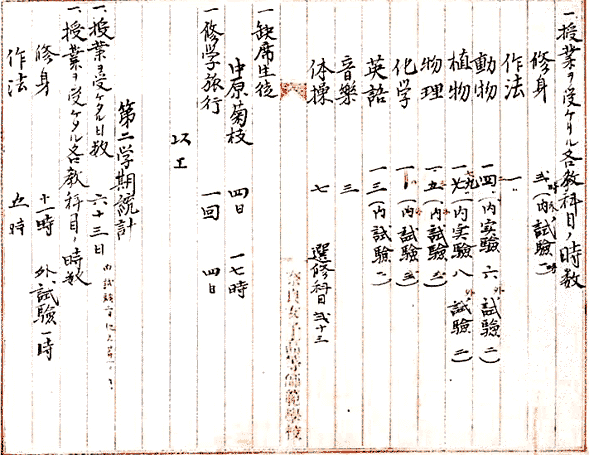 一、授業ヲ受ケタル各教科目ノ時数
修身 弐(内試験一時
作法 一
動物 一四(内実験 六 試験 二)
植物 一六(内実験 八 試験 二)
物理 一五(内試験
化学 一〇(内試験
英語 一三(内試験 二)
音樂 三
体操 七 選修科目 弐十三
一 缺席生徒
中原菊枝 四日 一七時
一 修学旅行 一回 四日
以上
奈良女子高等師範學校
第二学期統計
一、授業ヲ受ケタル日数 六十三日
一、授業ヲ受ケタル各教科目ノ時数
修身 十一時 外ニ試験一時
作法 五時